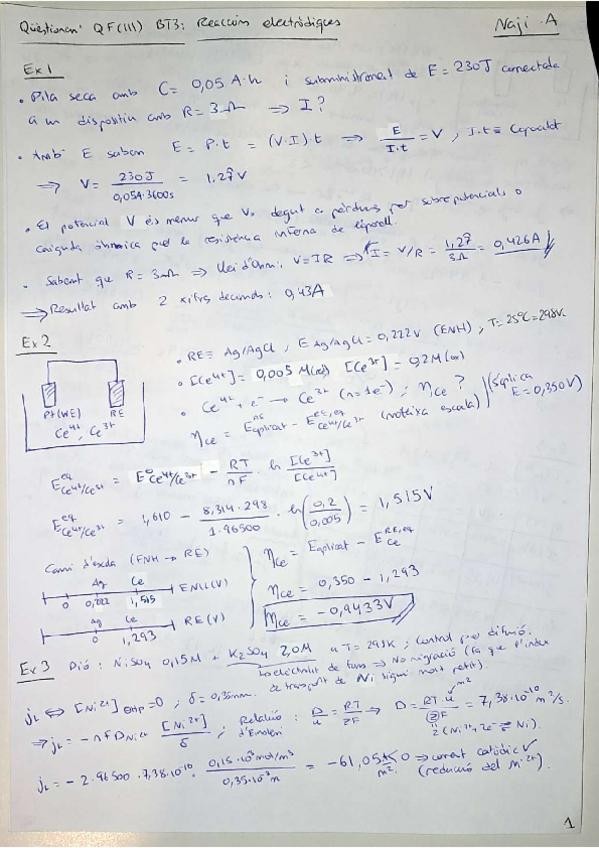 Qüestionari QF(III) BT3: Reaccions elèctròdiques
Naji. A
Ex 1
• Pila seca amb C = 0,05 A·h i subministrant de E = 230J connectada
a un dispositiu amb R = 3 Ω ⇒ I?
• Amb E sabem E = P·t = (V·I)·t ⇒ E/(I·t) = V, I·t ≡ Capacitat
⇒ V = 230J/(0,05A·3600s) = 1,27̂ V
• El potencial V és menor que V₀ degut a pèrdues per sobrepotencials o
caiguda òhmica per la resistència interna de l'aparell.
• Sabent que R = 3Ω ⇒ Llei d'Ohm: V=IR ⇒ I = V/R = 1,27̂/3Ω = 0,426A
⇒ Resultat amb 2 xifres decimals: 0,43A
Ex 2
• RE ≡ Ag/AgCl, E Ag/AgCl = 0,222V (ENH), T = 25ºC = 298K
• [Ce⁴⁺] = 0,005 M [Ce³⁺] = 0,2M
• Ce⁴⁺ + e⁻ → Ce³⁺ (n=1e⁻); η_Ce? (S'aplica E = 0,350V)
Pt(WE) RE
Ce⁴⁺, Ce³⁺
η_Ce = E_aplicat − E^{RE,eq}_{Ce⁴⁺/Ce³⁺} (mateixa escala)
E^{eq}_{Ce⁴⁺/Ce³⁺} = E⁰_{Ce⁴⁺/Ce³⁺} − RT/nF · ln [Ce³⁺]/[Ce⁴⁺]
E^{eq}_{Ce⁴⁺/Ce³⁺} = 1,610 − 8,314·298/1·96500 · ln(0,2/0,005) = 1,515V
Canvi d'escala (ENH → RE)
Ag Ce
0 0,222 1,515 ENH(V)
Ag Ce
0 1,293 RE(V)
η_Ce = E_aplicat − E^{RE,eq}_{Ce}
η_Ce = 0,350 − 1,293
η_Ce = −0,9433V
Ex 3 Dió: NiSO₄ 0,15M + K₂SO₄ 2,0M a T = 298K; control per difusió.
electròlit de fons ⇒ No migració (fa que l'índex
de transport de Ni sigui molt petit).
j_L ⇔ [Ni²⁺]=0; δ = 0,35mm.
⇒ j_L = −nFD_{Ni²⁺} [Ni²⁺]/δ; Relació d'Einstein: D/u = RT/zF ⇒ D = RT·u/zF = 7,38·10⁻¹⁰ m²/s.
2 (Ni²⁺+2e⁻ ⇌ Ni).
j_L = −2·96500·7,38·10⁻¹⁰ · 0,15·10³mol/m³/0,35·10⁻³m = −61,05 A/m² < 0 ⇒ corrent catòdic ✓
(reducció del Ni²⁺).
1